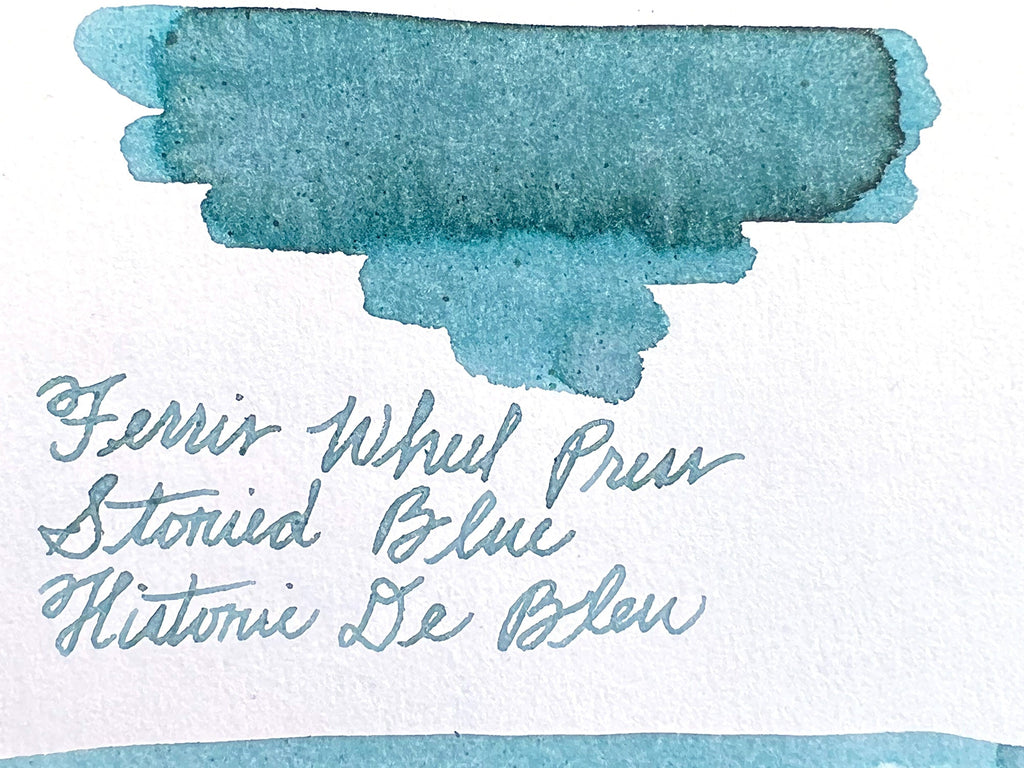 Ferris Wheel Press
Storied Blue
Historie De Bleu